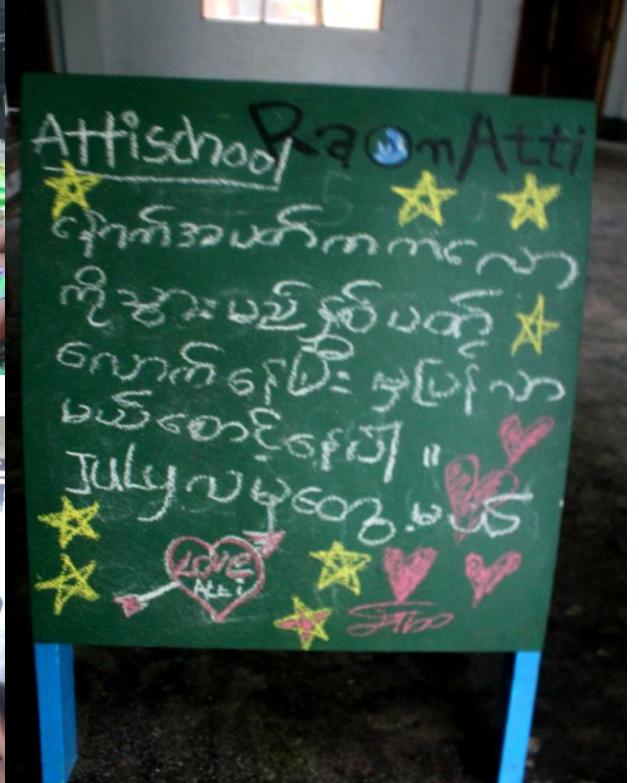 Attischool RaonAtti
နောက်အပတ်ကကလော
ကိုသွားမည်နှစ်ပတ်
လောက်နေပြီးမှပြန်လာ
မယ်စောင့်နေပါ။
July လမှတွေ့မယ်
LOVE
Atti